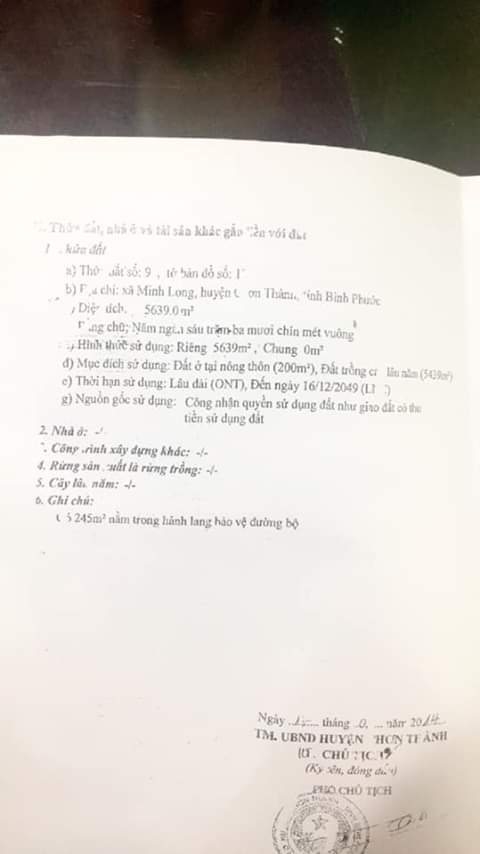 đất, nhà ở và tài sản khác gắn liền với đất
1. đất
a) đất số: 9 , tờ bản đồ số:
b) chỉ: xã Minh Long, huyện Thành, tỉnh Bình Phước
5639.0 m²
chữ; Năm nghìn sáu trăm ba mươi chín mét vuông
Hình thức sử dụng: Riêng 5639m² , Chung 0m²
đ) Mục đích sử dụng: Đất ở tại nông thôn (200m²), Đất trồng lâu năm (5439m²)
e) Thời hạn sử dụng: Lâu dài (ONT), Đến ngày 16/12/2049
g) Nguồn gốc sử dụng: Công nhận quyền sử dụng đất như giao đất có thu
tiền sử dụng đất
2. Nhà ở: -/-
Công trình xây dựng khác: -/-
4. Rừng sản xuất là rừng trồng: -/-
5. Cây lâu năm: -/-
6. Ghi chú:
245m² nằm trong hành lang bảo vệ đường bộ
Ngày tháng năm
TM. UBND HUYỆN
CHỦ TỊCH
(Ký tên, đóng dấu)
PHÓ CHỦ TỊCH